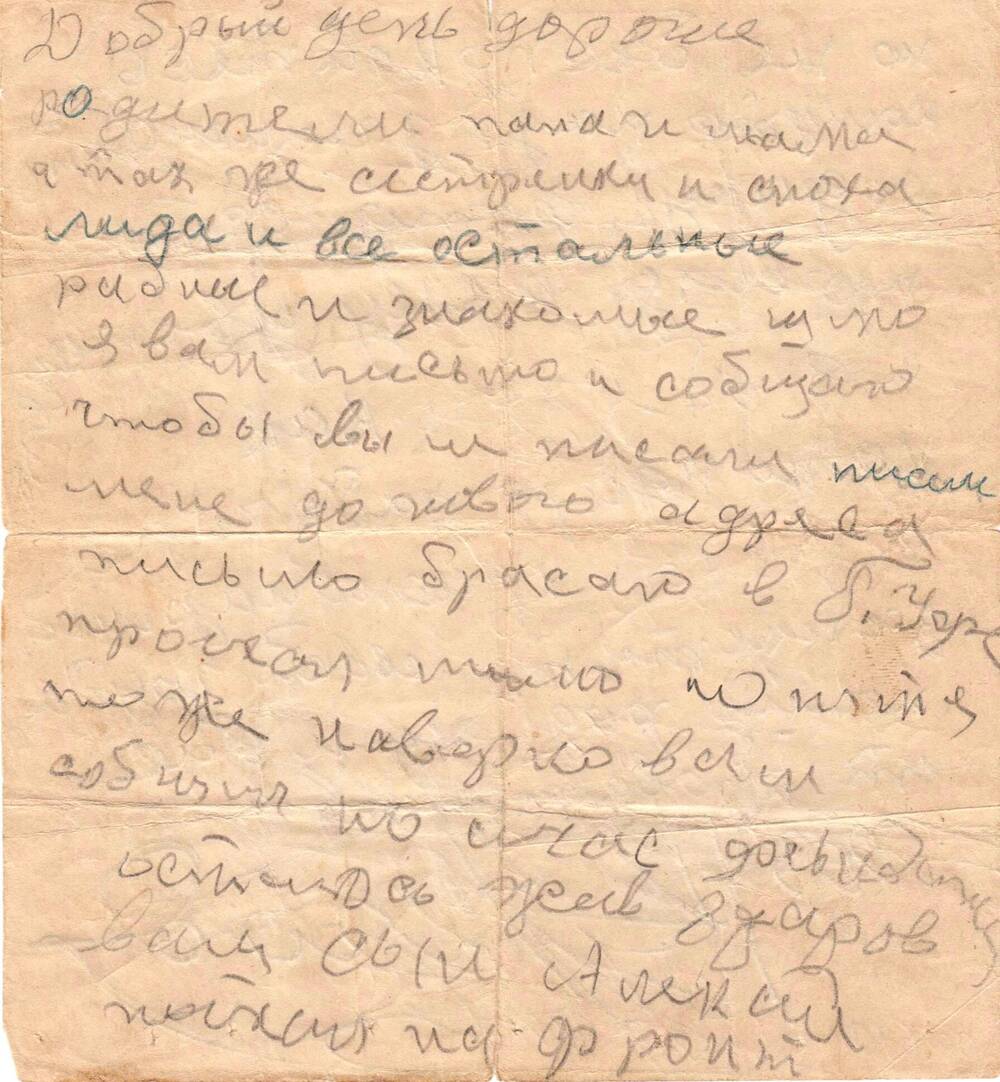 Добрый день дорогие
родители папа и мама
а так же сестренки и сноха
лида и все остальные
родные и знакомые шлю
я вам письмо и собщаю
чтобы вы ни писали писем
мене до нового адреса
письмо брасаю в г. Уфе
проехал мимо
то же наверно вам
собщил но счас досвидания
остаюсь жив здаров
ваш сын Алексей
поехал на фронт